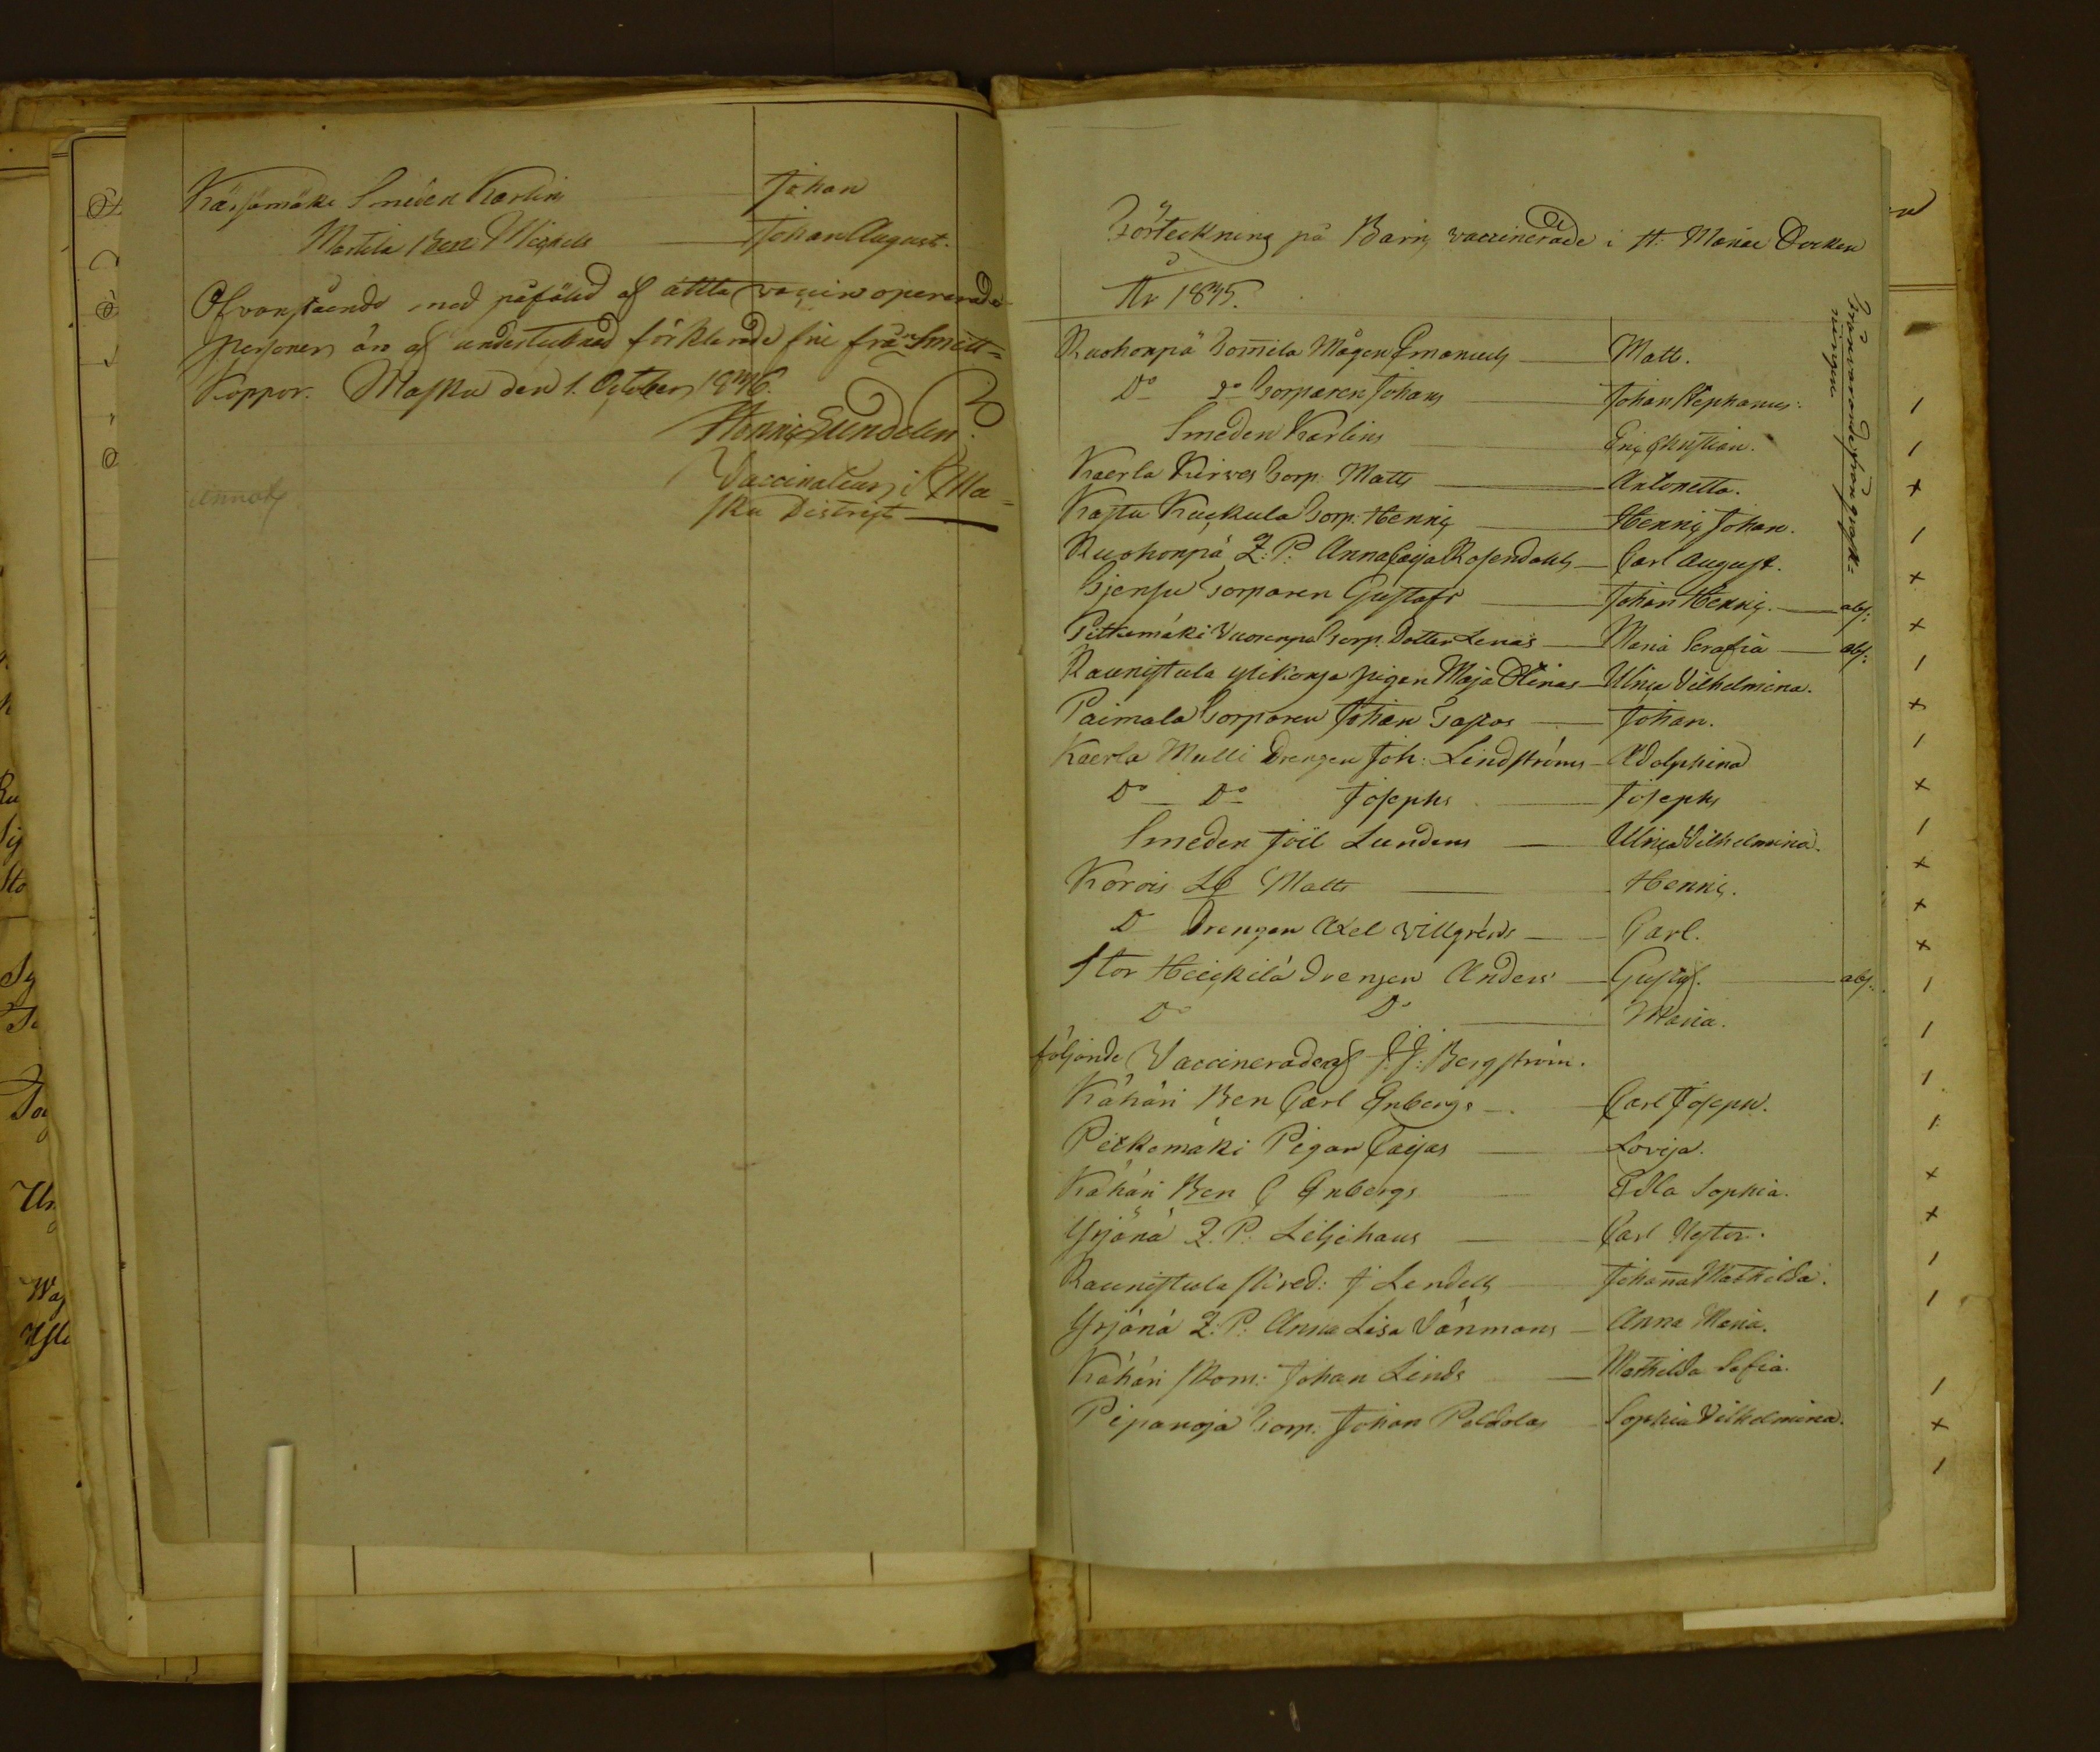 Kärsämäke Smeden Karlins Johan
Martila Ben Michels Johan August.
Ofvanstående med påföljd af åtta vaccin opererade
personer än af undertecknad förklarade frie från Smitt=
Koppor. Masku den 1. October 1846.
Henric Sundelin
Vaccinateur i Ma=
sku District
Förteckning på Barn vaccinerade i St. Mariæ Socken
År 1845.
Frånvarande från gransk=
ningen
Ruohonpä Tomila Mågen Emanuels Matt.
Do do Torparen Johans Johan Stephanus.
Smeden Karlins Eric Christian.
Kaerla Kirves Torp. Matts Antonetta.
Kastu Kuckula Torp. Henric Henric Johan.
Ruohonpä I: P: Anna Caija Rosendahls Carl August.
Torparen Gustafs Johan Henric. abs:
Pitkämäki Torp. Dotter Lenas Maria Serafia abs:
Raunistula ylikonsa pigan Maja Stinas Ulrica Vilhelmina.
Paimala Torparen Johan Johan.
Kaerla Mulli Drengen Joh: Lindströms Adolphina
Do Do Josephs Josephs
Smeden Joel Lundens Ulrica Vilhelmina.
Korois Matts Henric.
D Drengen Axel Villgréns Carl.
Stor Heickilä drengen Anders Gustaf. abs:
Do Do Maria.
följande Vaccinerade af J. J: Bergström.
Kähäri Ben Carl Enbergs Carl Joseph.
Pitkämäki Pigan Caijas Lovisa.
Kähäri Ben C Enbergs Edla Sophia.
Yrjänä I. P: Liljehans Carl Nestor.
Raunistula J Lindells Johanna Mathilda.
Yrjänä I: P: Anna Lisa Vänmans Anna Maria.
Kähäri skom: Johan Linds Mathilda Sofia.
Pipanoja Torp. Johan Sophia Vilhelmina.